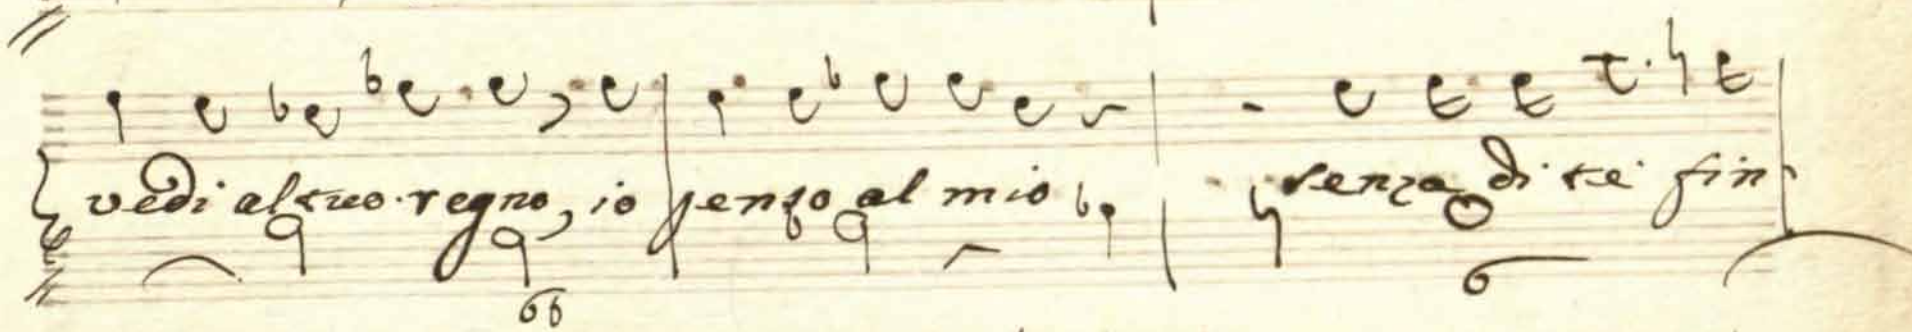 vedi al tuo regno, io penso al mio senza di te fin